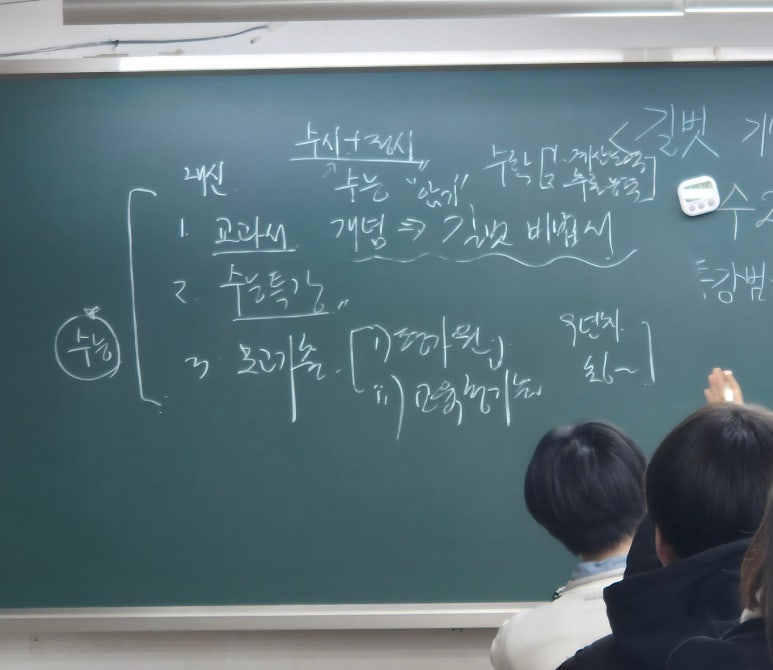 수시+정시
수학 [ 1. 계산능력
추론능력 ]
<길벗
내신
수능 "암기"
1. 교과서 개념 ⇒ 길벗 비법서
수2
2. 수능특강
특강범
수능
3. 모고기출 [ i) 평가원
ii) 교육청기출
9년치